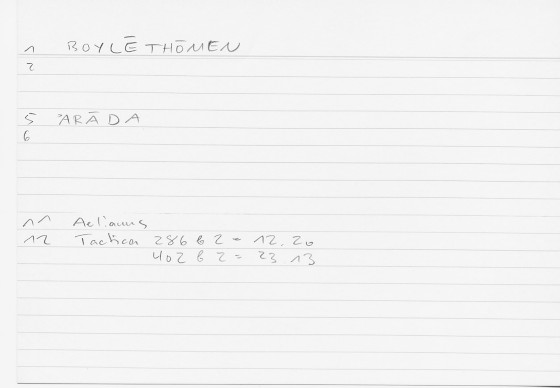 1 BOYLĒTHŌMEN
2
5 ARĀDA
6
11 Aelianus
12 Tactica 286 b 2 = 12.20
402 b 2 = 23.13